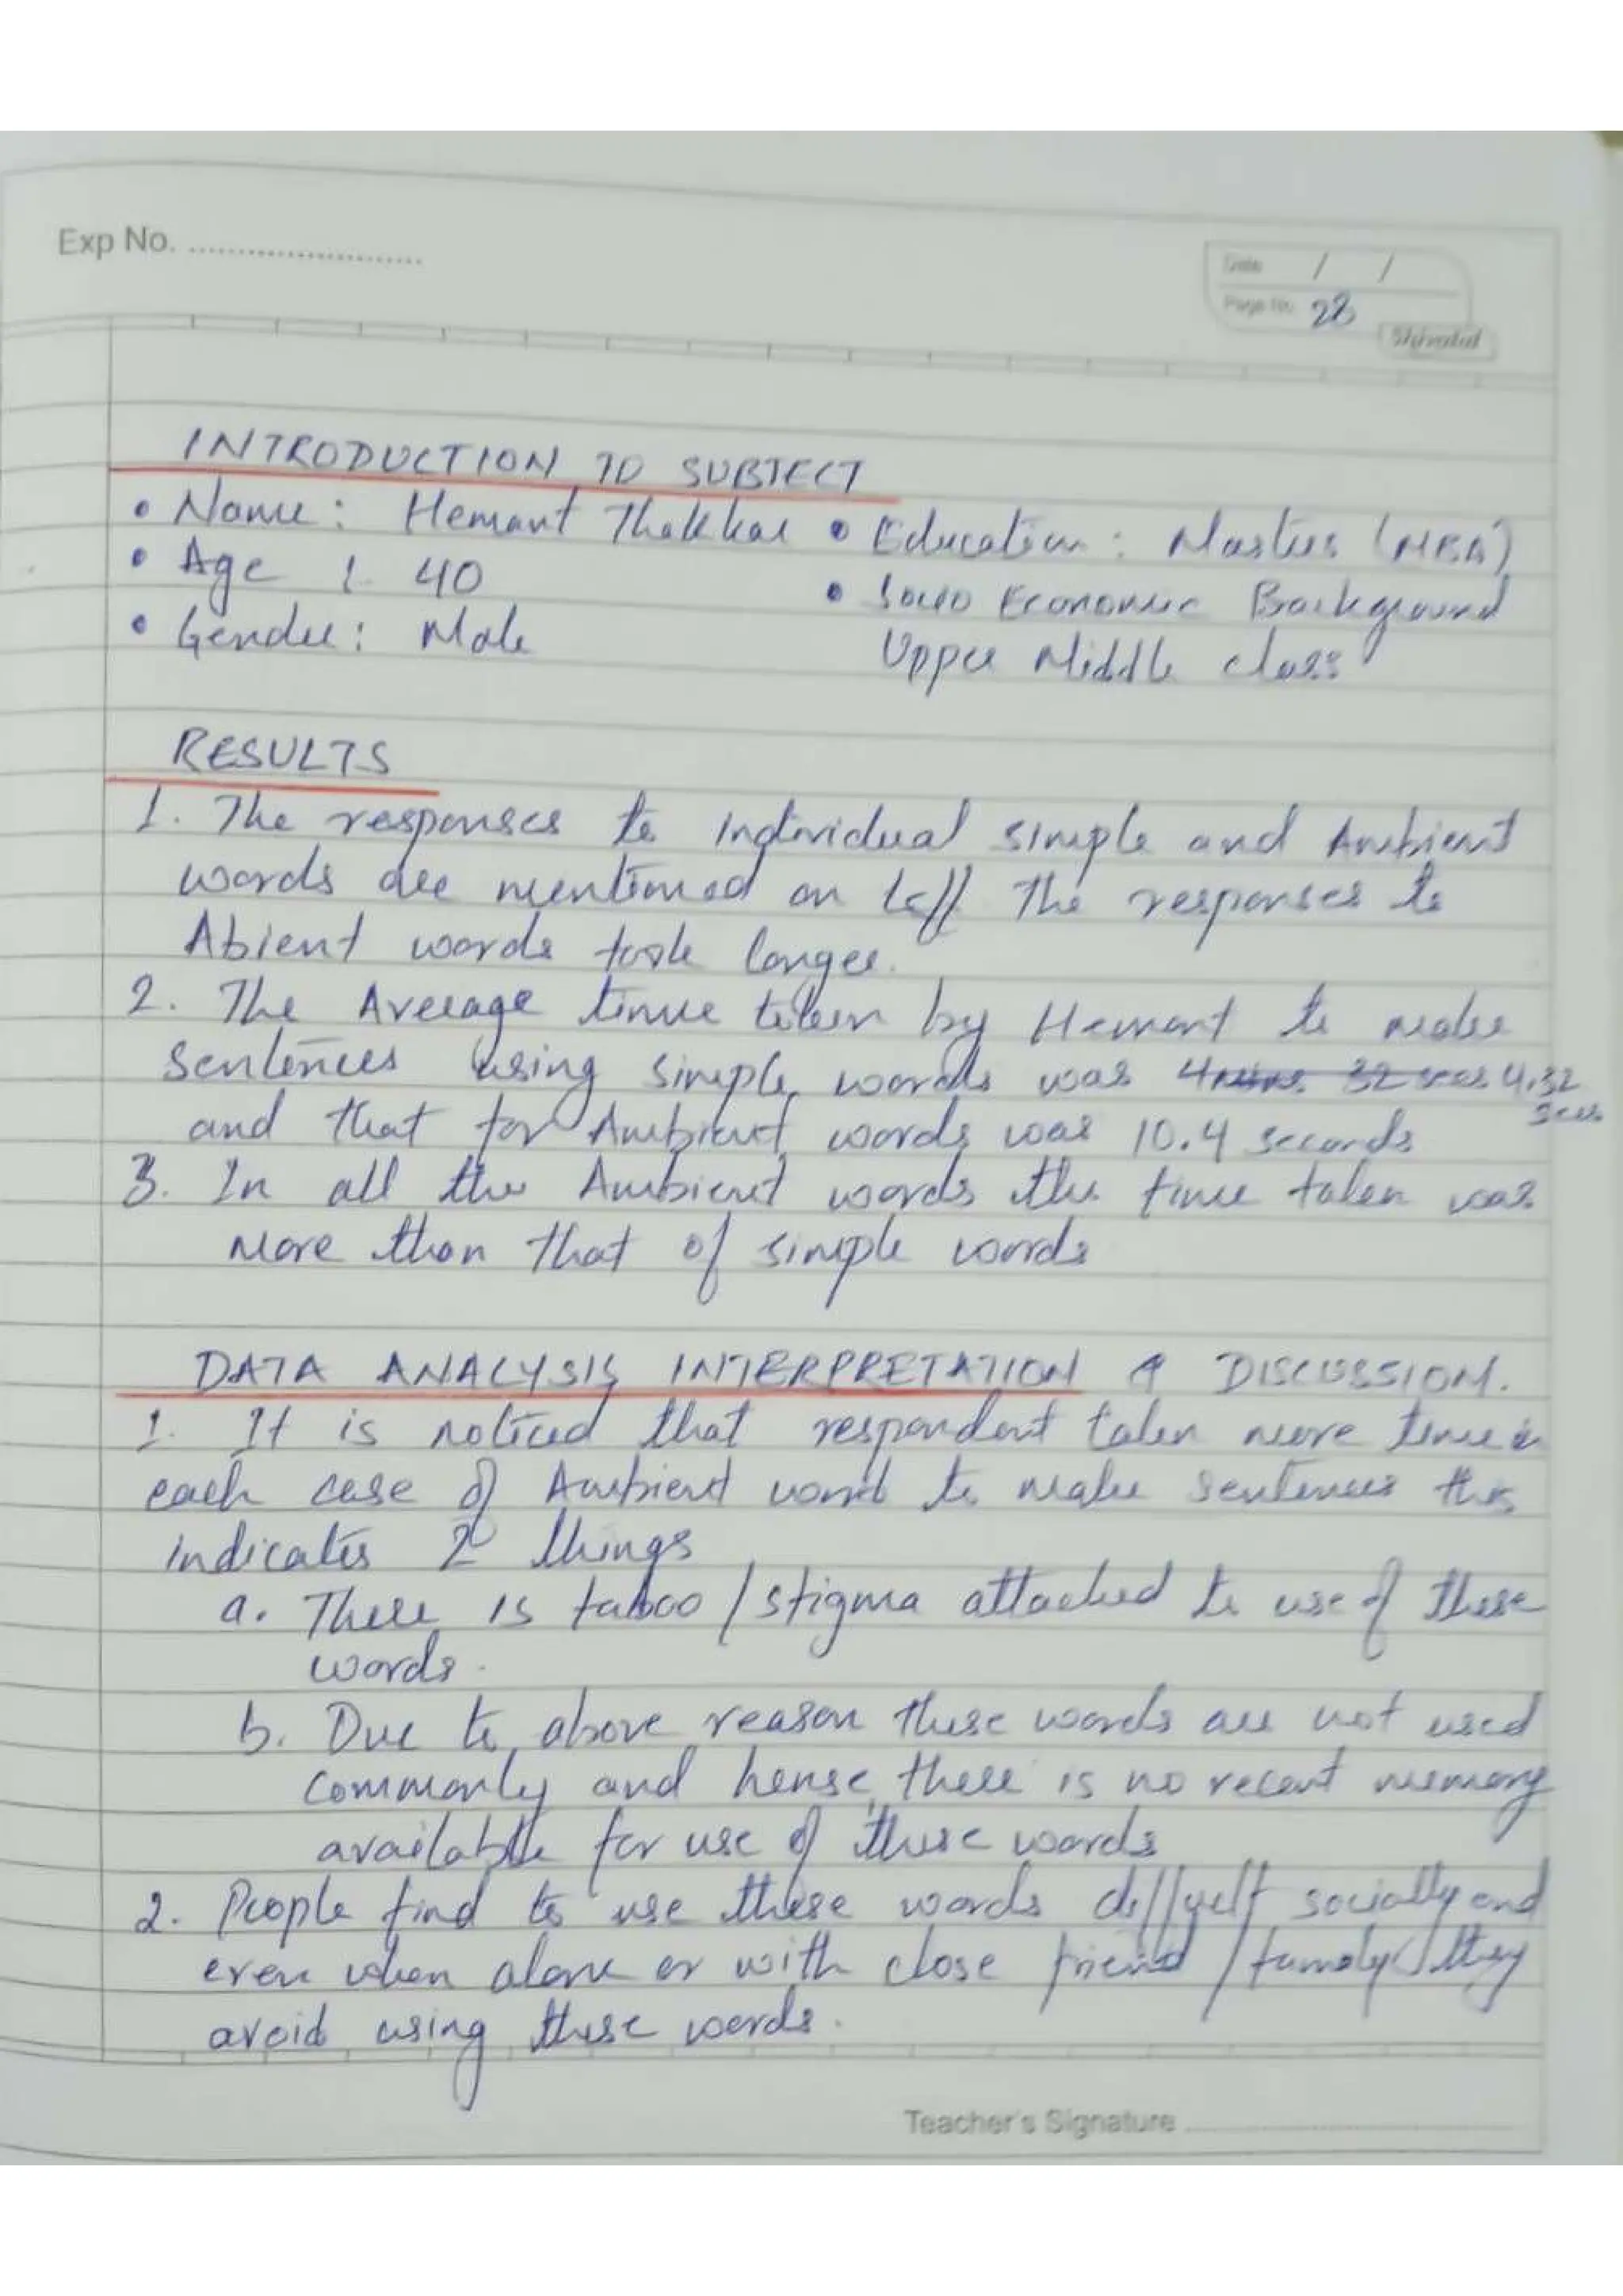 Exp No. ........................
Date / /
Page No. 28
Shivalal
INTRODUCTION TO SUBJECT
• Name: Hemant Thakkar • Education: Masters (MBA)
• Age : 40 • Socio Economic Background
• Gender: Male Upper Middle class
RESULTS
1. The responses to individual simple and Ambient
words are mentioned on left. The responses to
Abient words took longer.
2. The Average time taken by Hemant to make
Sentences using simple words was 4 mins. 32 secs 4.32
secs
and that for Ambient words was 10.4 seconds
3. In all the Ambient words the time taken was
more than that of simple words
DATA ANALYSIS INTERPRETATION & DISCUSSION.
1. It is noticed that respondent taken more time in
each case of Ambient word to make sentences this
indicates 2 things
a. There is taboo / stigma attached to use of these
words.
b. Due to above reason these words are not used
commonly and hense there is no recent memory
available for use of these words
2. People find to use these words socially and
even when alone or with close friend / family they
avoid using these words.
Teacher's Signature